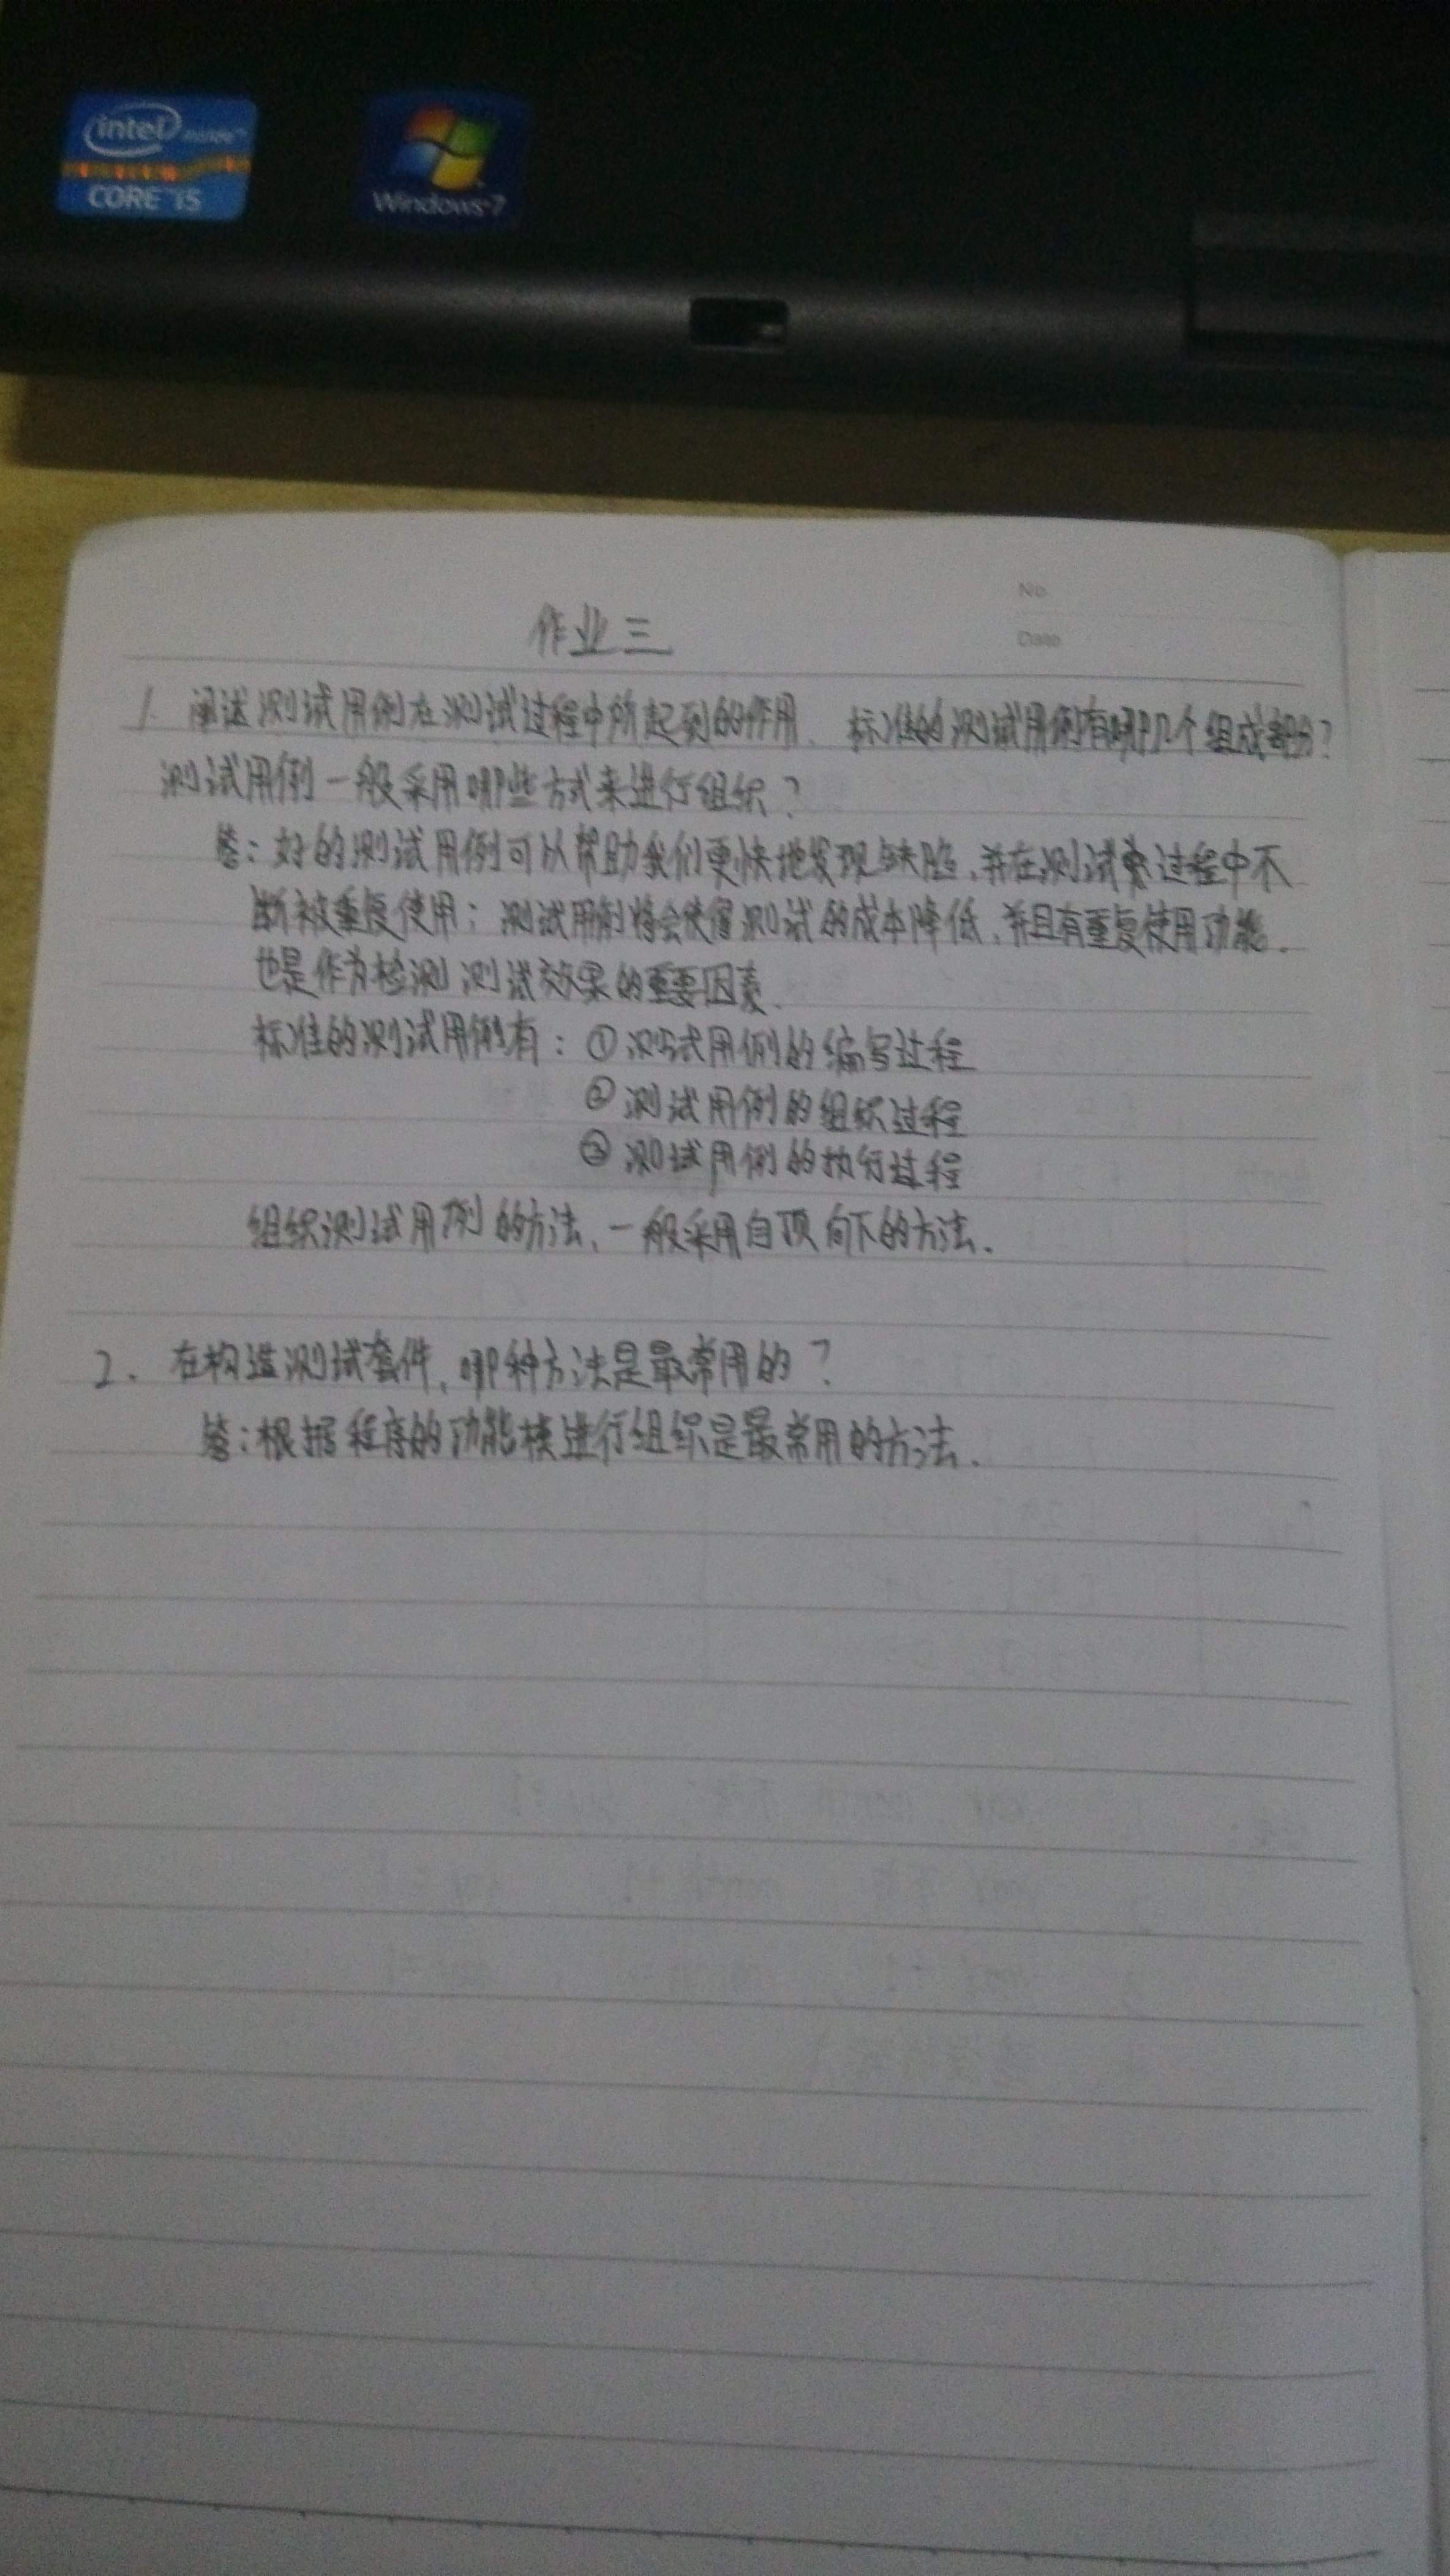 intel inside™
CORE™ i5
Windows 7
No
Date
作业三
1. 阐述测试用例在测试过程中所起到的作用、标准的测试用例有哪几个组成部分?
测试用例一般采用哪些方式来进行组织?
答:好的测试用例可以帮助我们更快地发现缺陷,并在测试过程中不
断被重复使用;测试用例将会使得测试的成本降低,并且有重复使用功能.
也是作为检测测试效果的重要因素.
标准的测试用例有:①测试用例的编写过程
②测试用例的组织过程
③测试用例的执行过程
组织测试用例的方法,一般采用自顶向下的方法.
2. 在构造测试套件,哪种方法是最常用的?
答:根据程序的功能模进行组织是最常用的方法.